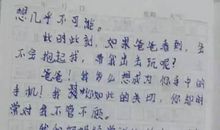 想几乎不可能。
此时此刻，如果爸爸看到，会
不会抱起我，带我出去玩呢？
爸爸！我多么想成为你手中的
手机！我 如此的关切，你却时
常对我不管不顾。